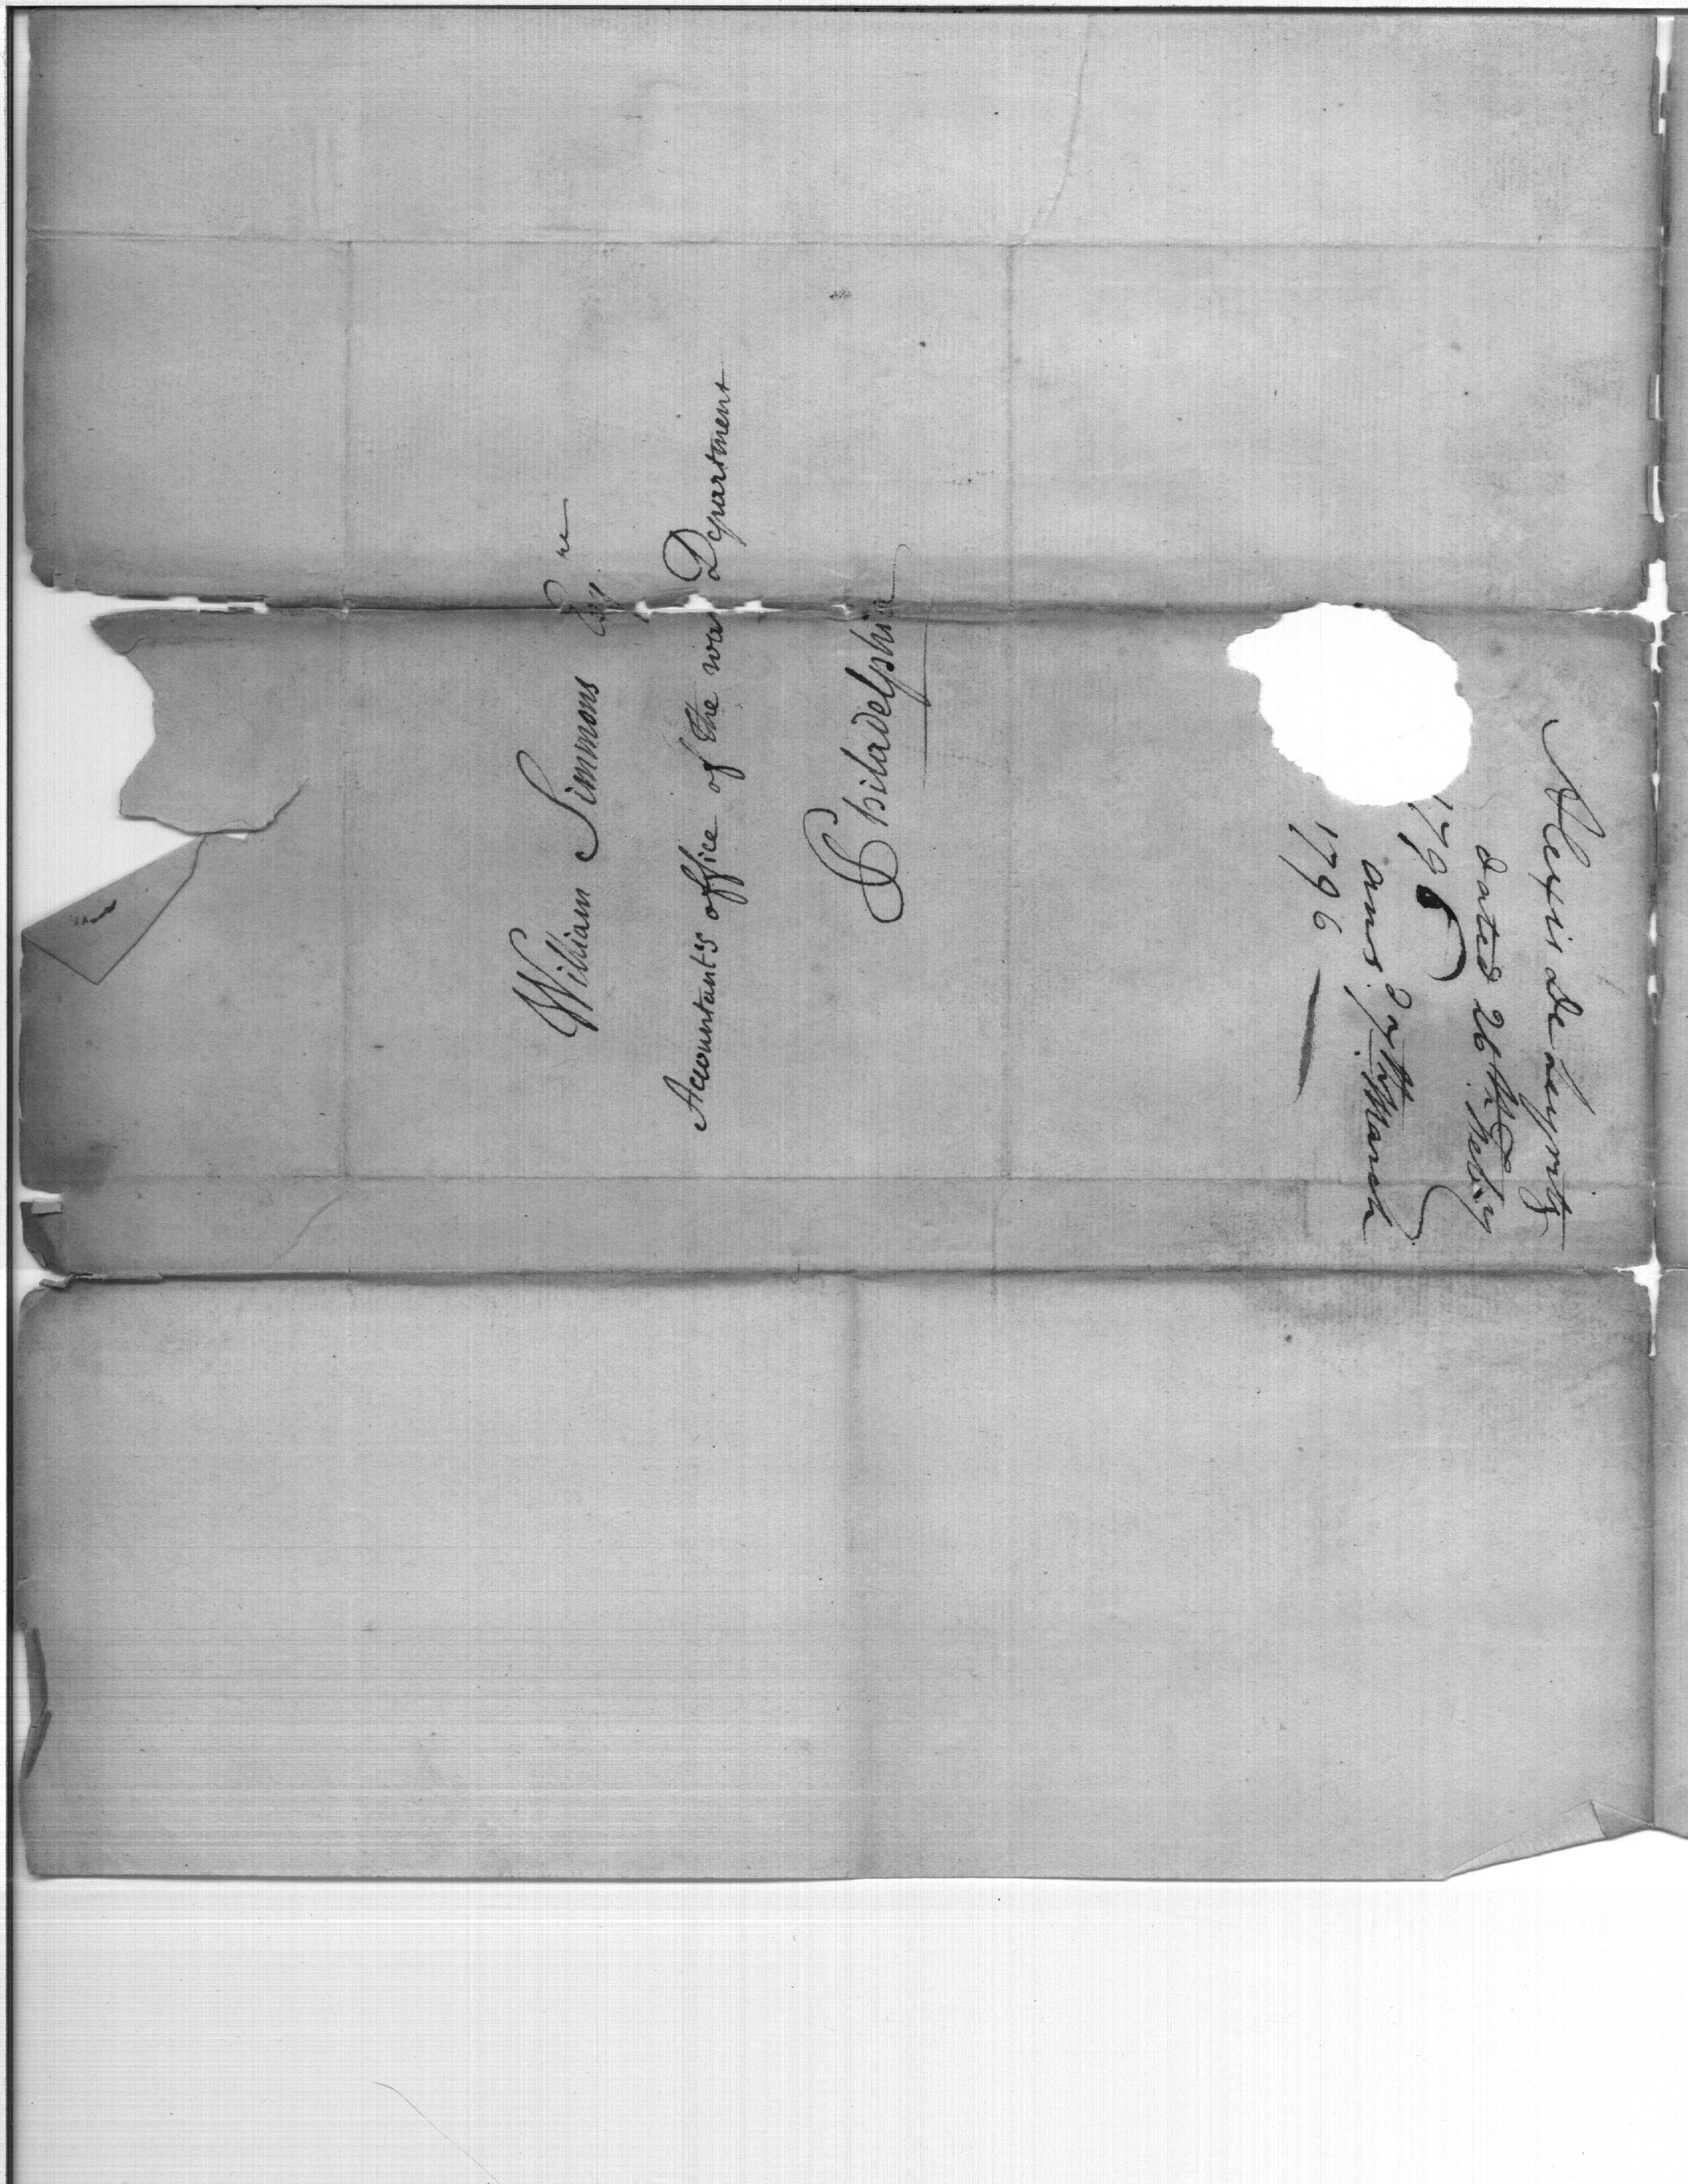 William Simmons Esqre
Accountant's office of the war Department
Philadelphia
Alexis De
dated 26th Feby
1796
ans. 27th March
1796